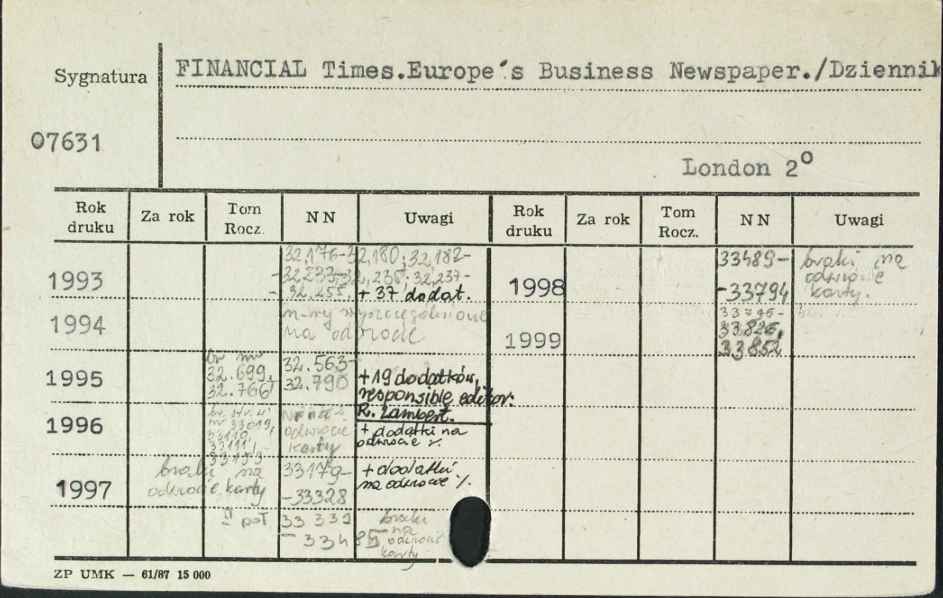 Sygnatura
FINANCIAL Times.Europe´s Business Newspaper./Dziennik
07631
London 2°
Rok druku Za rok Tom Rocz. NN Uwagi Rok druku Za rok Tom Rocz. NN Uwagi
1993 32,176-32,180; 32,182-
32,237-
+ 37 dodat.
1994 n-ry wyszczególnione
na odwrocie
1995 br nr
32.699,
32.766
32.563-
32.790
+19 dodatków,
responsible editor:
R. Lambert.
1996
odwrocie
karty
+ dodatki na
odwrocie
1997 braki na
odwrocie karty
33179-
-33328
+ dodatki
na odwrocie
II poł
33 339
- 33485
braki
na
odwrocie
karty
1998 33489-
-33794
braki na
odwrocie
karty.
1999
33826,
33852
ZP UMK — 61/87 15 000